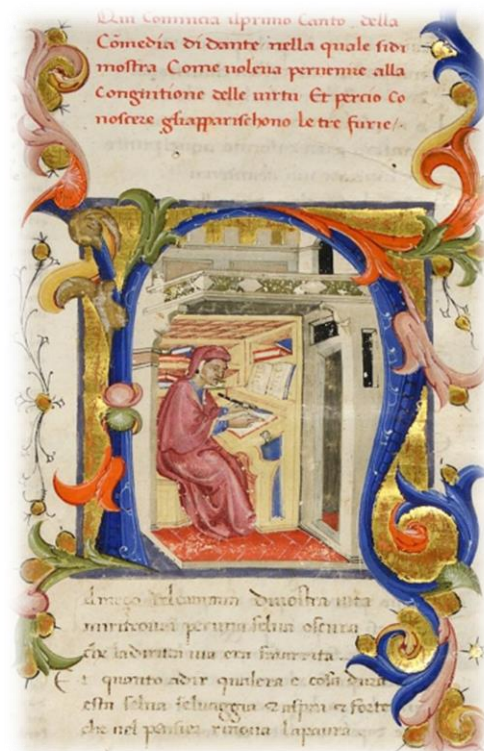 Qui Comincia ilprimo Canto della
Cōmedia di dante nella quale sidi
mostra Come voleva pervenire alla
Congintione delle virtu Et percio Co
noscere gliapparischono le tre furie/
N
el mezo delcamin dinostra vita
miritrovai peruna selva oscura
che ladiritta via era smarrita
E quanto adir qualera e cosa dura
esta selva selvaggia & aspra & forte
che nel pensier rinova lapaura